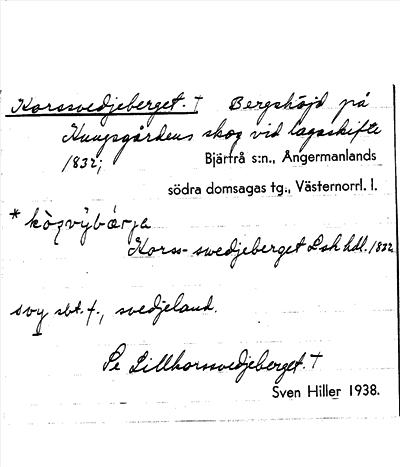 Korssvedjeberget. † Bergshöjd på
Kungsgårdens skog vid lagaskifte
1832;
Bjärtrå s:n., Ångermanlands
södra domsagas tg., Västernorrl. l.
* kòʂvỳbærja
Korss-swedjeberget Lsk hdl. 1832
svy sbt. f., svedjeland.
Se Lillkorssvedjeberget. †
Sven Hiller 1938.